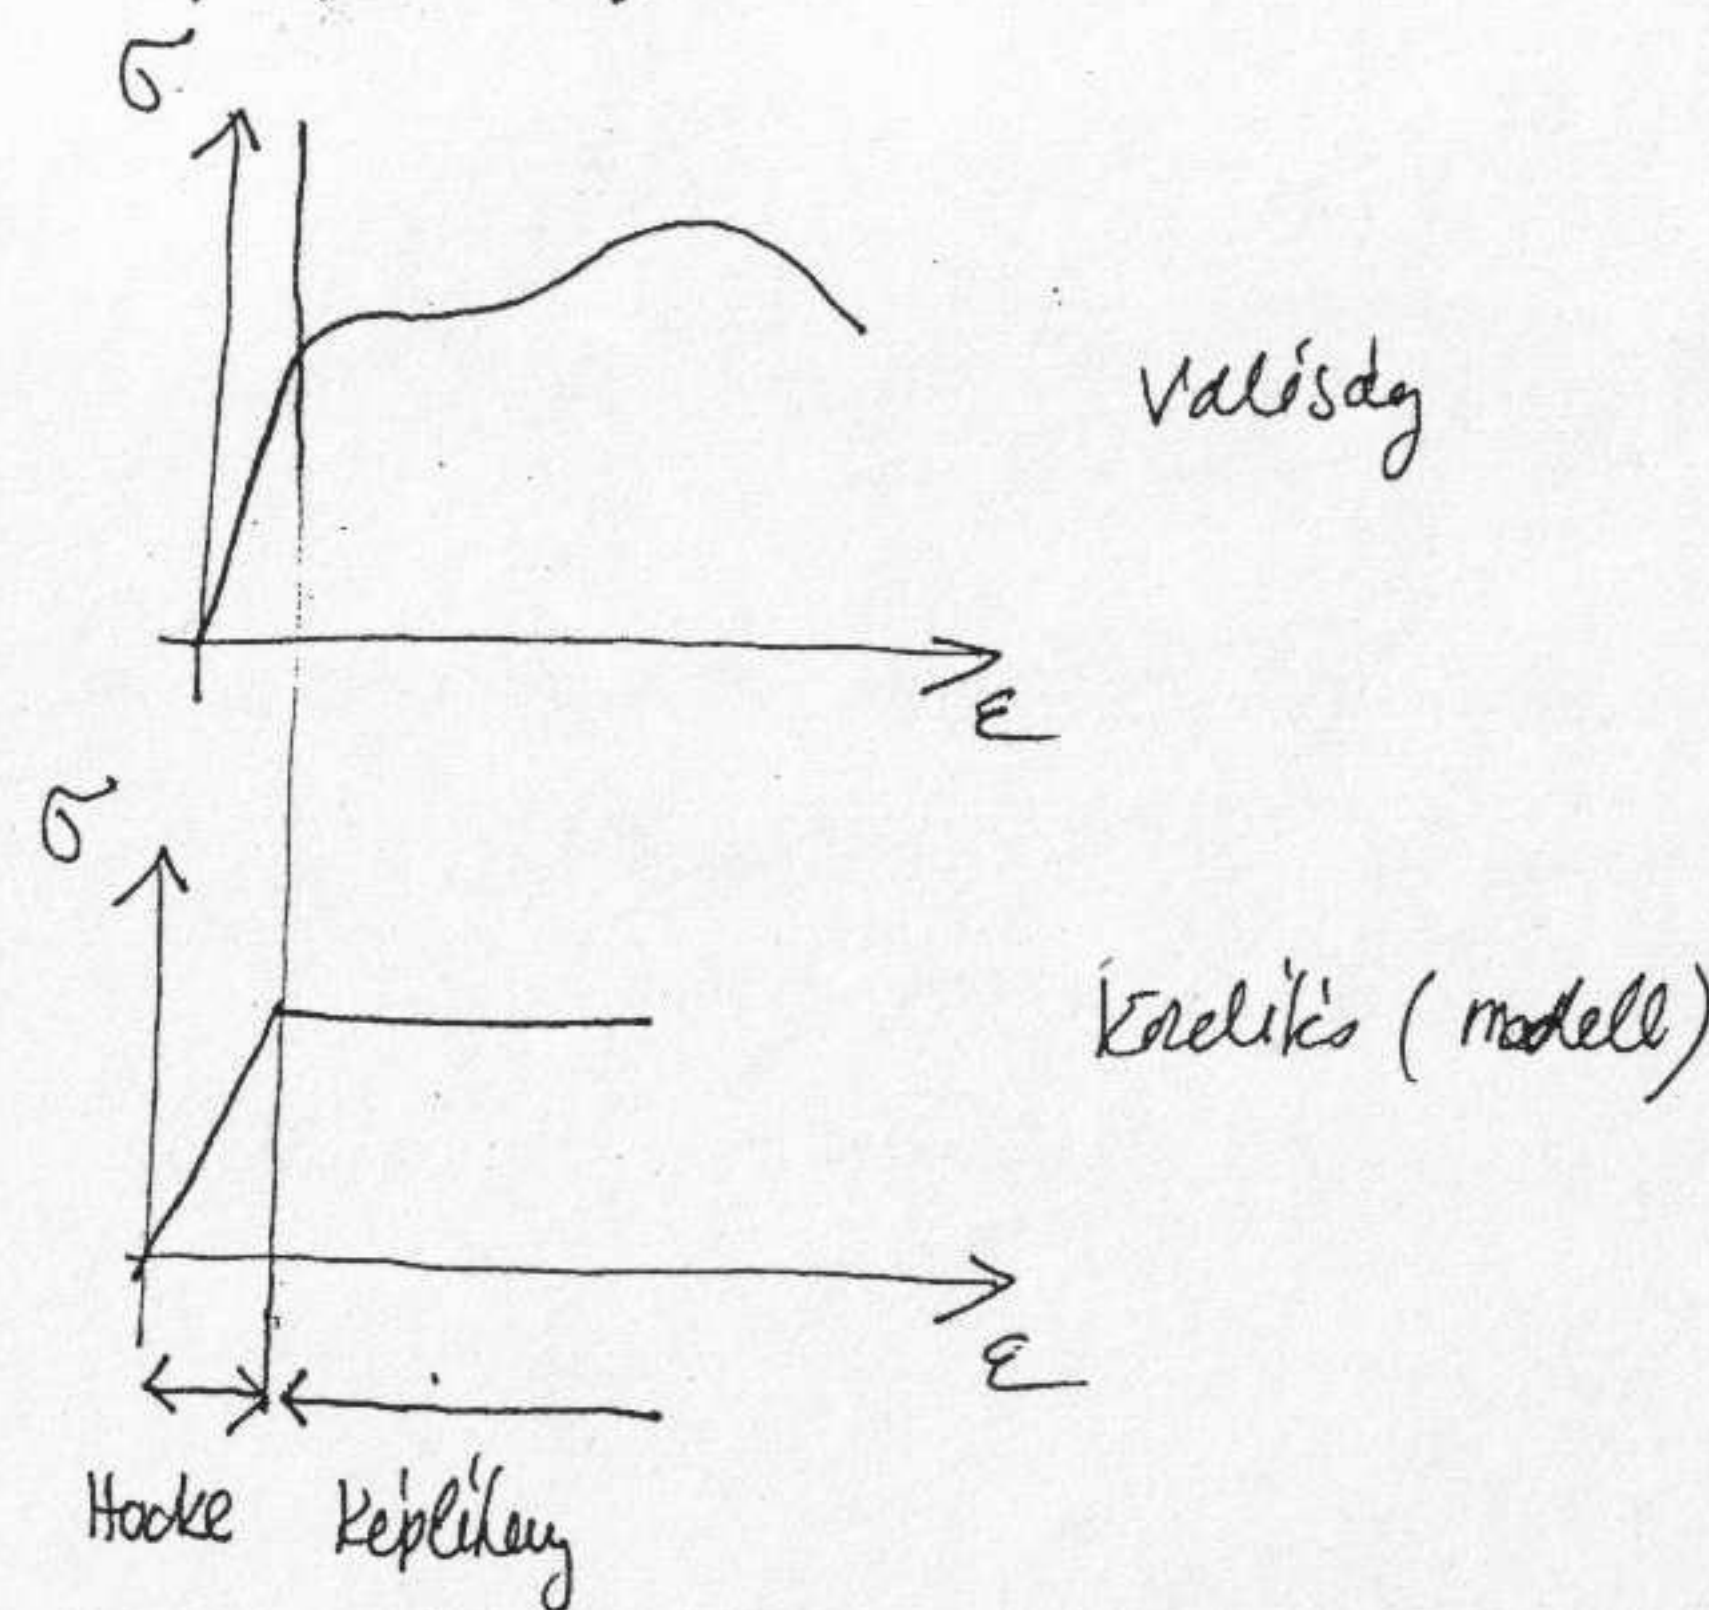 σ
Valóság
ε
σ
Közelítés (modell)
ε
Hooke Képlékeny